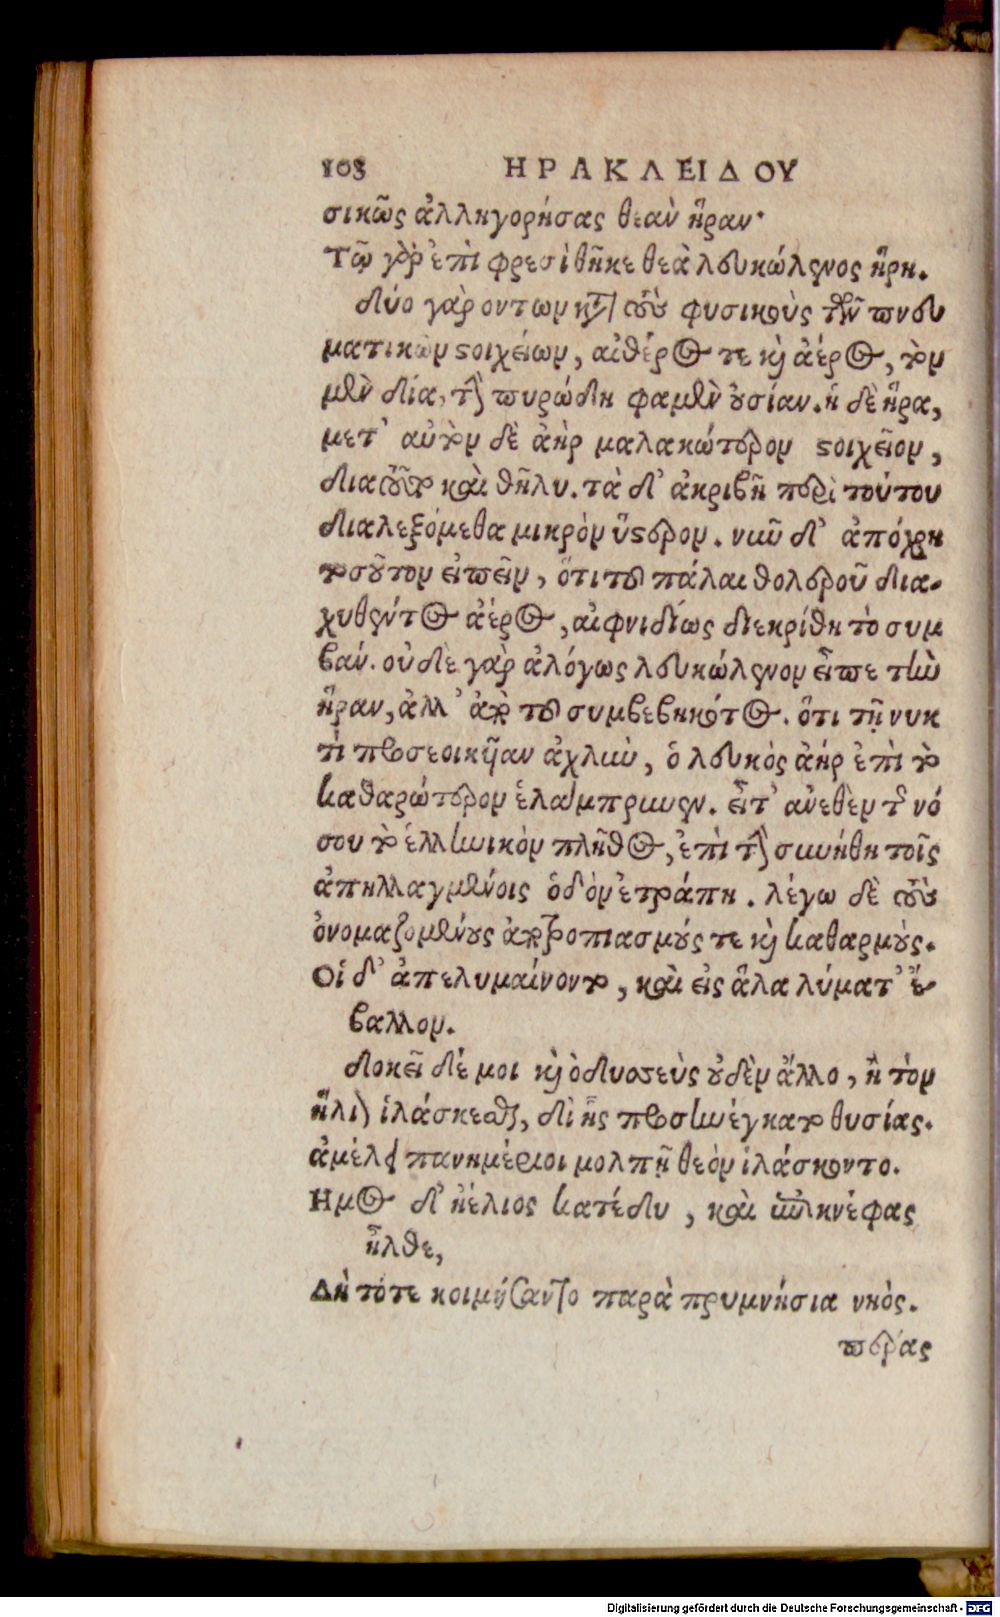 108 ΗΡΑΚΛΕΙΔΟΥ
σικῶς ἀλληγορήσας θεὰν ἥραν·
Τῷ γὰρ ἐπὶ φρεσὶ θῆκε θεὰ λευκώλενος ἥρη.
δύο γὰρ οντων κατὰ τοὺς φυσικοὺς τῶν πνευ
ματικῶν στοιχείων, αἰθέρος τε καὶ ἀέρος, τὸν
μὲν δία, τὴν πυρώδη φαμὲν οὐσίαν. ἡ δὲ ἥρα,
μετ' αὐτὸν δὲ ἀὴρ μαλακώτερον στοιχεῖον,
διατοῦτο καὶ θῆλυ. τὰ δ' ἀκριβῆ περὶ τούτου
διαλεξόμεθα μικρὸν ὕστερον. νῦν δ' ἀπόχρη
τοσοῦτον εἰπεῖν, ὅτι τοῦ πάλαι θολεροῦ δια-
χυθέντος ἀέρος, αἰφνιδίως διεκρίθη τὸ συμ
βάν. οὐδὲ γὰρ ἀλόγως λευκώλενον εἶπε τὴν
ἥραν, ἀλλ' ἀπὸ τοῦ συμβεβηκότος. ὅτι τῇ νυκ
τὶ προσεοικῆαν ἀχλὺν, ὁ λευκὸς ἀὴρ ἐπὶ τὸ
καθαρώτερον ἐλάμπρυνεν. εἶτ' ανεθὲν τῆς νό
σου τὸ ἑλληνικὸν πλῆθος, ἐπὶ τὴν συνήθη τοῖς
ἀπηλλαγμένοις ὁδὸν ἐτράπη. λέγω δὲ τοὺς
ὀνομαζομένους ἀποτροπιασμούς τε καὶ καθαρμοὺς.
Οἱ δ' ἀπελυμαίνοντο, καὶ εἰς ἅλα λύματ' ἔ-
βαλλον.
δοκεῖ δέ μοι καὶ ὀδυσσεὺς οὐδὲν ἄλλο, ἢ τὸν
ἥλιον ἱλάσκεσθαι, δι ἧς προσηνέγκατο θυσίας.
ἀμέλει πανημέριοι μολπῇ θεὸν ἱλάσκοντο.
Ημος δ' ἠέλιος κατέδυ, καὶ ἐπὶ κνέφας
ἦλθε,
Δὴ τότε κοιμήσαντο παρὰ πρυμνήσια νηός.
πέρας
Digitalisierung gefördert durch die Deutsche Forschungsgemeinschaft - DFG